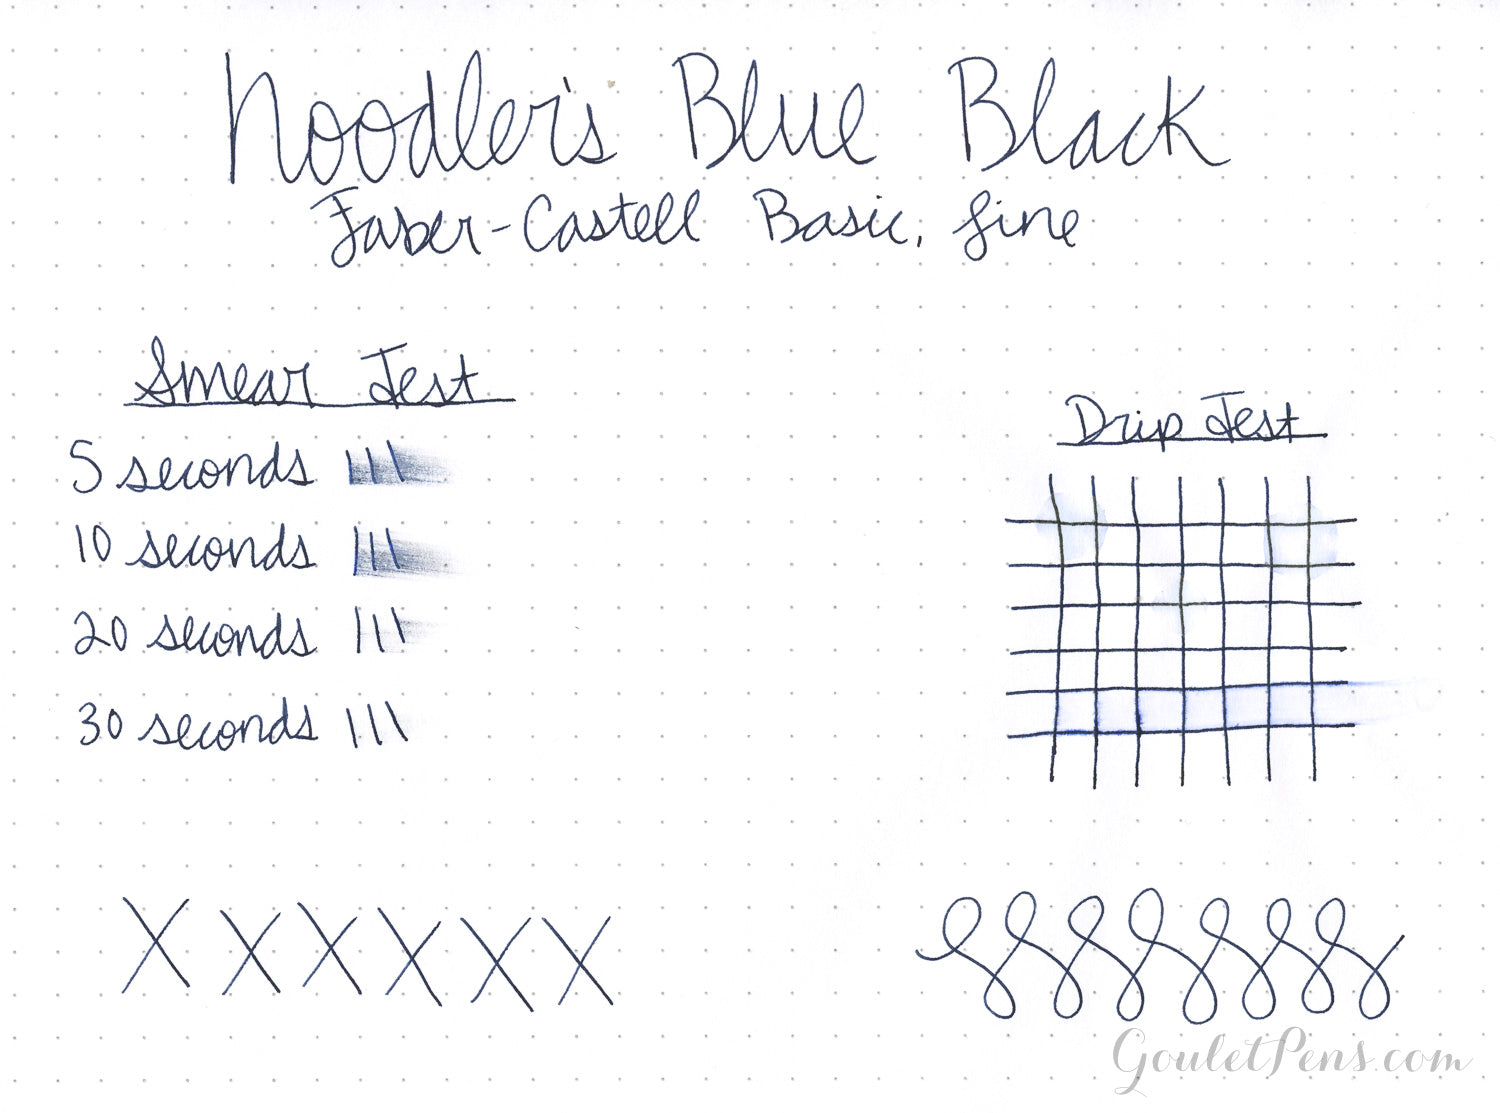 Noodler's Blue Black
Faber-Castell Basic, fine
Smear Test
5 seconds
10 seconds
20 seconds
30 seconds
Drip Test
X X X X X X
GouletPens.com